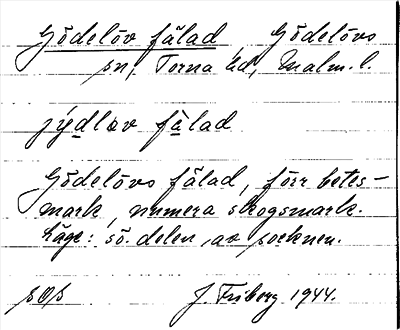 Gödelöv fälad, Gödelövs
sn, Torna hd, Malm. l.
jýdlǝv fälad
Gödelövs fälad, förr betes-
mark, numera skogsmark.
Läge: sö. delen av socknen.
J. Friberg 1944.